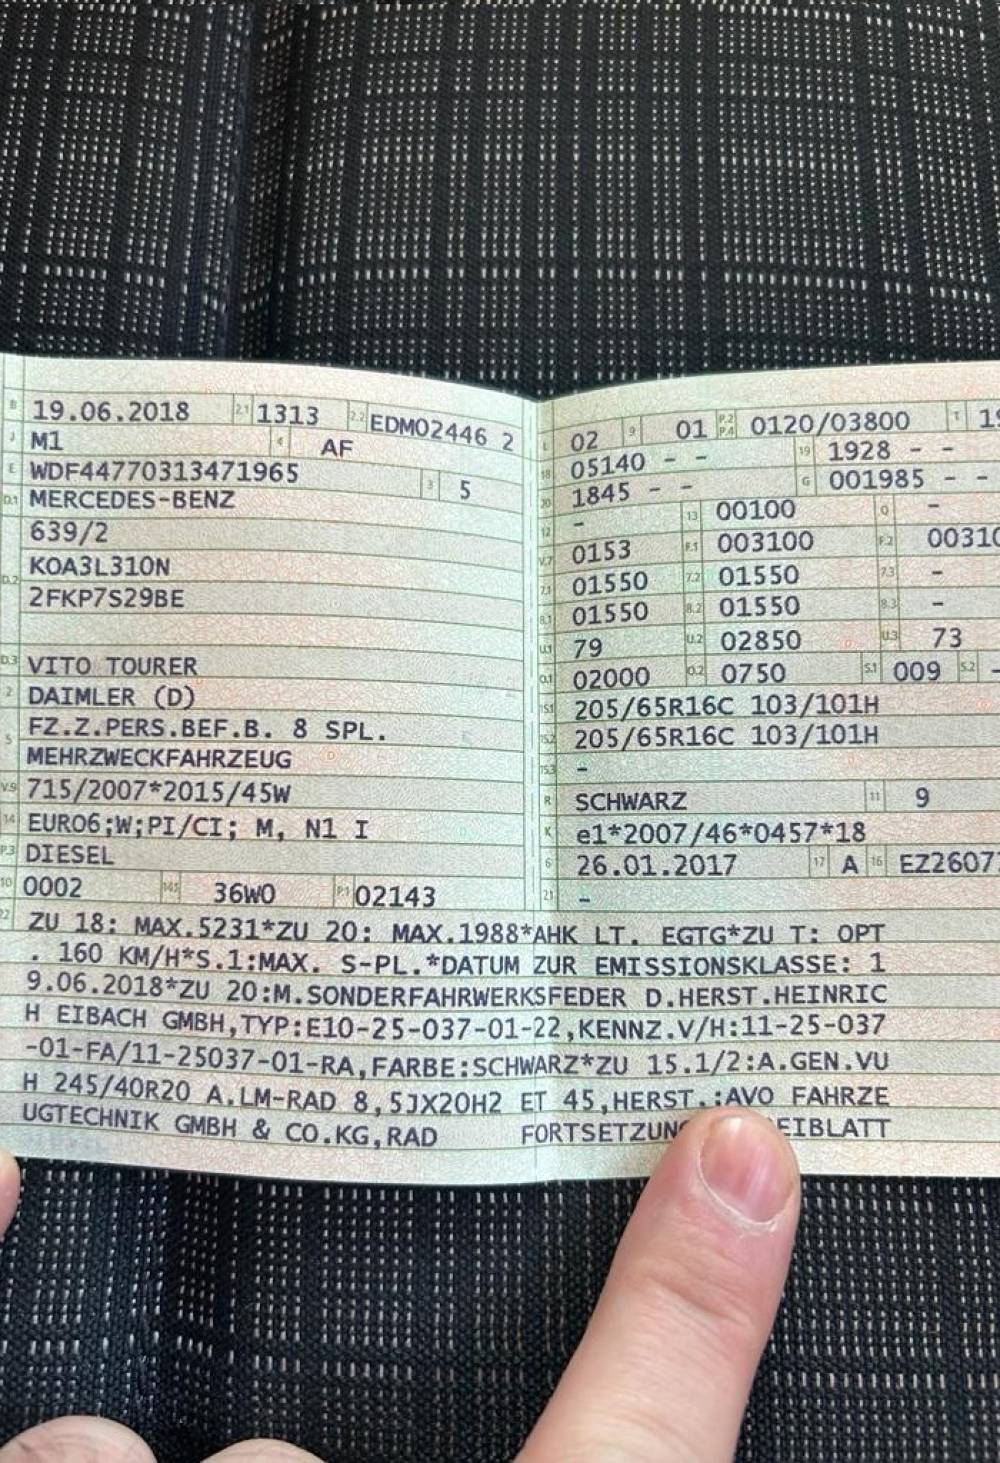 B 19.06.2018 2.1 1313 2.2 EDM02446 2
J M1 4 AF
E WDF44770313471965 3 5
D.1 MERCEDES-BENZ
639/2
D.2 KOA3L310N
2FKP7S29BE
D.3 VITO TOURER
2 DAIMLER (D)
5 FZ.Z.PERS.BEF.B. 8 SPL.
MEHRZWECKFAHRZEUG
V.9 715/2007*2015/45W
14 EURO6;W;PI/CI; M, N1 I
P.3 DIESEL
10 0002 14.1 36W0 P.1 02143
L 02 9 01 P.2 P.4 0120/03800 T 19
18 05140 - - 19 1928 - -
20 1845 - - G 001985 - -
12 - 13 00100 Q -
V.7 0153 F.1 003100 F.2 00310
7.1 01550 7.2 01550 7.3 -
8.1 01550 8.2 01550 8.3 -
U.1 79 U.2 02850 U.3 73
O.1 02000 O.2 0750 S.1 009 S.2 -
15.1 205/65R16C 103/101H
15.2 205/65R16C 103/101H
15.3 -
R SCHWARZ 11 9
K e1*2007/46*0457*18
6 26.01.2017 17 A 16 EZ2607
21 -
22 ZU 18: MAX.5231*ZU 20: MAX.1988*AHK LT. EGTG*ZU T: OPT
. 160 KM/H*S.1:MAX. S-PL.*DATUM ZUR EMISSIONSKLASSE: 1
9.06.2018*ZU 20:M.SONDERFAHRWERKSFEDER D.HERST.HEINRIC
H EIBACH GMBH,TYP:E10-25-037-01-22,KENNZ.V/H:11-25-037
-01-FA/11-25037-01-RA,FARBE:SCHWARZ*ZU 15.1/2:A.GEN.VU
H 245/40R20 A.LM-RAD 8,5JX20H2 ET 45,HERST.:AVO FAHRZE
UGTECHNIK GMBH & CO.KG,RAD FORTSETZUN EIBLATT